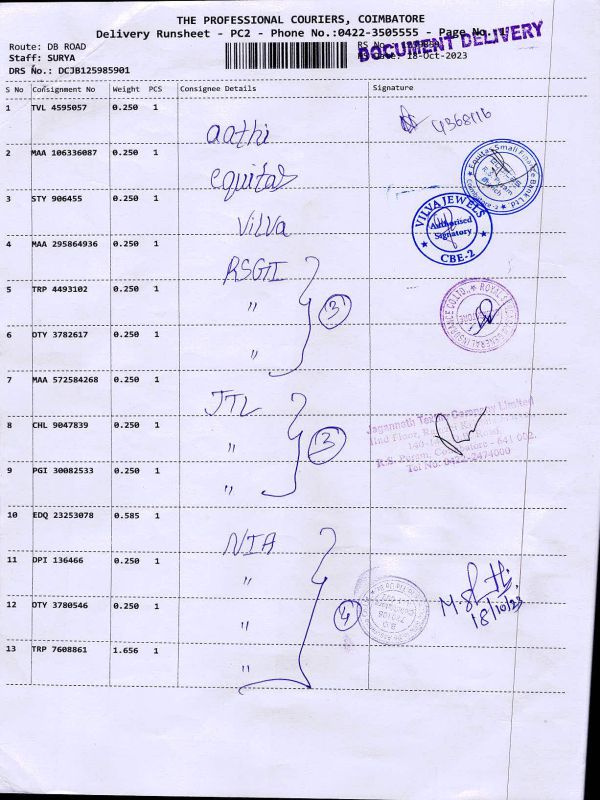 THE PROFESSIONAL COURIERS, COIMBATORE
Delivery Runsheet - PC2 - Phone No.:0422-3505555 - Page No.:1
DOCUMENT DELIVERY
Route: DB ROAD
Staff: SURYA
18-Oct-2023
DRS No.: DCJB125985901
S No Consignment No Weight PCS Consignee Details Signature
1 TVL 4595057 0.250 1
aathi
2 MAA 106336087 0.250 1
equitas
Equitas Small Finance Bank Ltd
3 STY 906455 0.250 1
Vilva
VILVA JEWELS
Authorised
Signatory
CBE-2
4 MAA 295864936 0.250 1
RSGI
5 TRP 4493102 0.250 1
"
3
6 OTY 3782617 0.250 1
"
7 MAA 572584268 0.250 1
JTL
Jagannath Textile Company Limited
8 CHL 9047839 0.250 1
"
3
R.S. Puram, Coimbatore - 641 002.
9 PGI 30082533 0.250 1
"
10 EDQ 23253078 0.585 1
NIA
11 DPI 136466 0.250 1
"
12 OTY 3780546 0.250 1
"
4
18/10/23
13 TRP 7608861 1.656 1
"